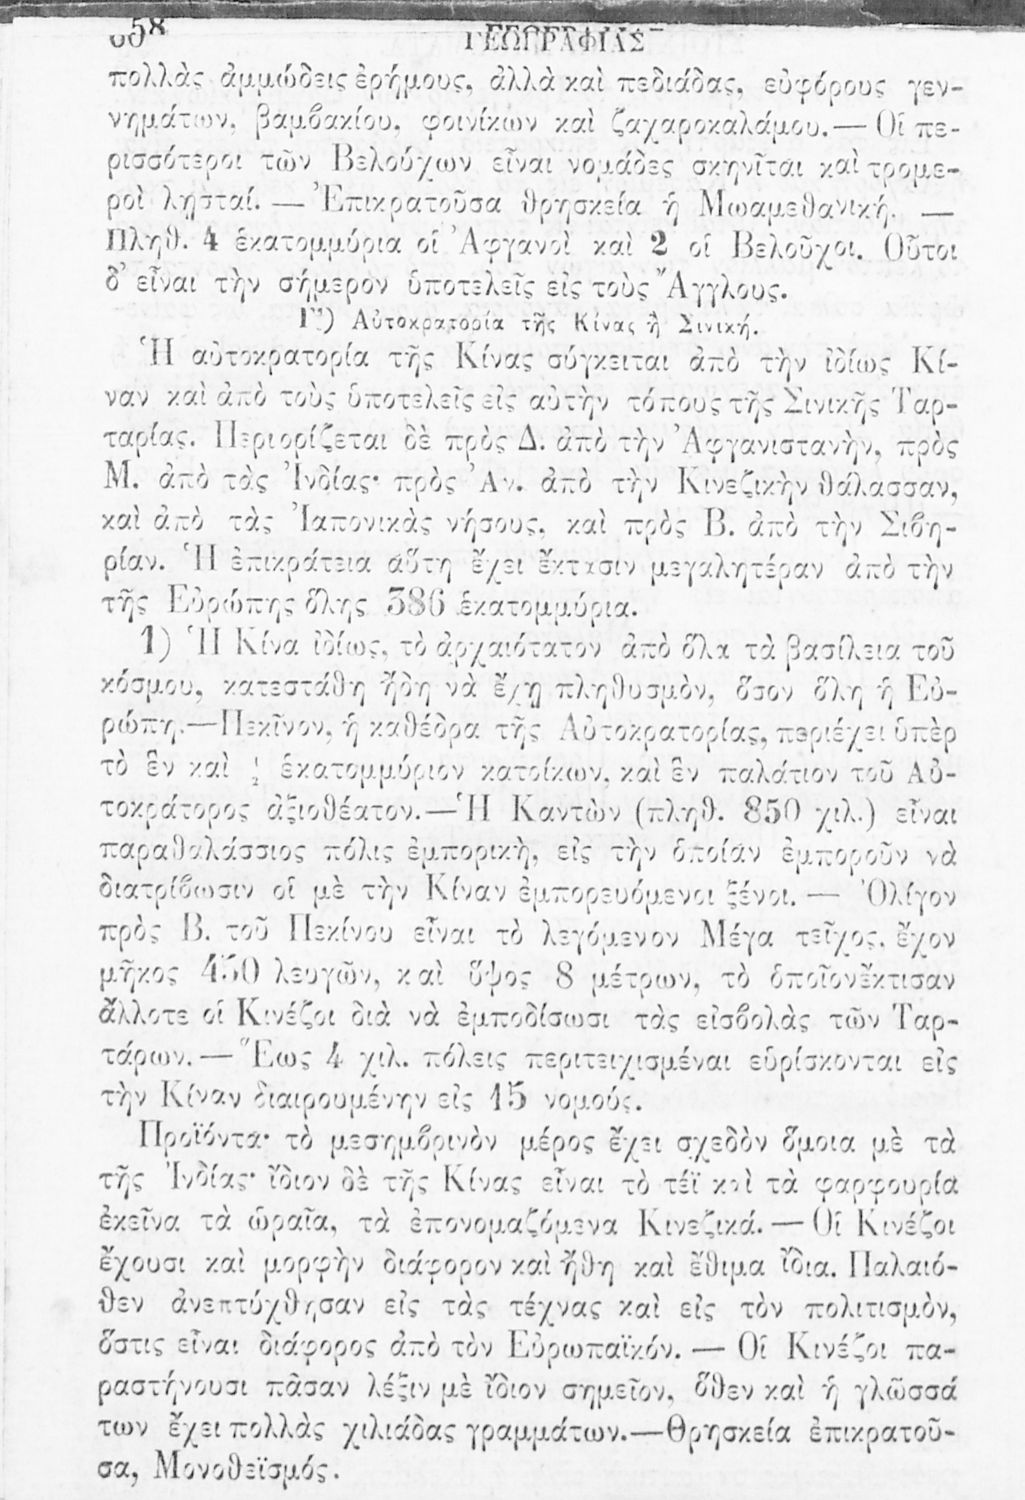 58 ΓΕΩΓΡΑΦΙΑΣ
πολλὰς ἀμμώδεις ἐρήμους, ἀλλὰ καὶ πεδιάδας, εὐφόρους γεν-
νημάτων, βαμβακίου, φοινίκων καὶ ζαχαροκαλάμου.— Οἱ πε-
ρισσότεροι τῶν Βελούχων εἶναι νομάδες σκηνῖται καὶ τρομε-
ροὶ λῃσταί. — Ἐπικρατοῦσα θρησκεία ἡ Μωαμεθανική. —
Πληθ. 4 ἑκατομμύρια οἱ Ἀφγανοὶ καὶ 2 οἱ Βελοῦχοι. Οὗτοι
δ' εἶναι τὴν σήμερον ὑποτελεῖς εἰς τοὺς Ἄγγλους.
Γ') Αὐτοκρατορία τῆς Κίνας ἢ Σινική.
Ἡ αὐτοκρατορία τῆς Κίνας σύγκειται ἀπὸ τὴν ἰδίως Κί-
ναν καὶ ἀπὸ τοὺς ὑποτελεῖς εἰς αὐτὴν τόπους τῆς Σινικῆς Ταρ-
ταρίας. Περιορίζεται δὲ πρὸς Δ. ἀπὸ τὴν Ἀφγανιστανὴν, πρὸς
Μ. ἀπὸ τὰς Ἰνδίας· πρὸς Ἀν. ἀπὸ τὴν Κινεζικὴν θάλασσαν,
καὶ ἀπὸ τὰς Ἰαπονικὰς νήσους, καὶ πρὸς Β. ἀπὸ τὴν Σιβη-
ρίαν. Ἡ ἐπικράτεια αὕτη ἔχει ἔκτασιν μεγαλητέραν ἀπὸ τὴν
τῆς Εὐρώπης ὅλης 386 ἑκατομμύρια.
1) Ἡ Κίνα ἰδίως, τὸ ἀρχαιότατον ἀπὸ ὅλα τὰ βασίλεια τοῦ
κόσμου, κατεστάθη ἤδη νὰ ἔχῃ πληθυσμὸν, ὅσον ὅλη ἡ Εὐ-
ρώπη.—Πεκῖνον, ἡ καθέδρα τῆς Αὐτοκρατορίας, περιέχει ὑπὲρ
τὸ ἓν καὶ ½ ἑκατομμύριον κατοίκων, καὶ ἓν παλάτιον τοῦ Αὐ-
τοκράτορος ἀξιοθέατον.—Ἡ Καντὼν (πληθ. 850 χιλ.) εἶναι
παραθαλάσσιος πόλις ἐμπορικὴ, εἰς τὴν ὁποίαν ἐμποροῦν νὰ
διατρίβωσιν οἱ μὲ τὴν Κίναν ἐμπορευόμενοι ξένοι. — Ὀλίγον
πρὸς Β. τοῦ Πεκίνου εἶναι τὸ λεγόμενον Μέγα τεῖχος, ἔχον
μῆκος 450 λευγῶν, καὶ ὕψος 8 μέτρων, τὸ ὁποῖον ἔκτισαν
ἄλλοτε οἱ Κινέζοι διὰ νὰ ἐμποδίσωσι τὰς εἰσβολὰς τῶν Ταρ-
τάρων. — Ἕως 4 χιλ. πόλεις περιτειχισμέναι εὑρίσκονται εἰς
τὴν Κίναν διαιρουμένην εἰς 15 νομούς.
Προϊόντα· τὸ μεσημβρινὸν μέρος ἔχει σχεδὸν ὅμοια μὲ τὰ
τῆς Ἰνδίας· ἴδιον δὲ τῆς Κίνας εἶναι τὸ τέϊ καὶ τὰ φαρφουρία
ἐκεῖνα τὰ ὡραῖα, τὰ ἐπονομαζόμενα Κινεζικά. — Οἱ Κινέζοι
ἔχουσι καὶ μορφὴν διάφορον καὶ ἤθη καὶ ἔθιμα ἴδια. Παλαιό-
θεν ἀνεπτύχθησαν εἰς τὰς τέχνας καὶ εἰς τὸν πολιτισμὸν,
ὅστις εἶναι διάφορος ἀπὸ τὸν Εὐρωπαϊκόν. — Οἱ Κινέζοι πα-
ραστήνουσι πᾶσαν λέξιν μὲ ἴδιον σημεῖον, ὅθεν καὶ ἡ γλῶσσά
των ἔχει πολλὰς χιλιάδας γραμμάτων.—Θρησκεία ἐπικρατοῦ-
σα, Μονοθεϊσμός.